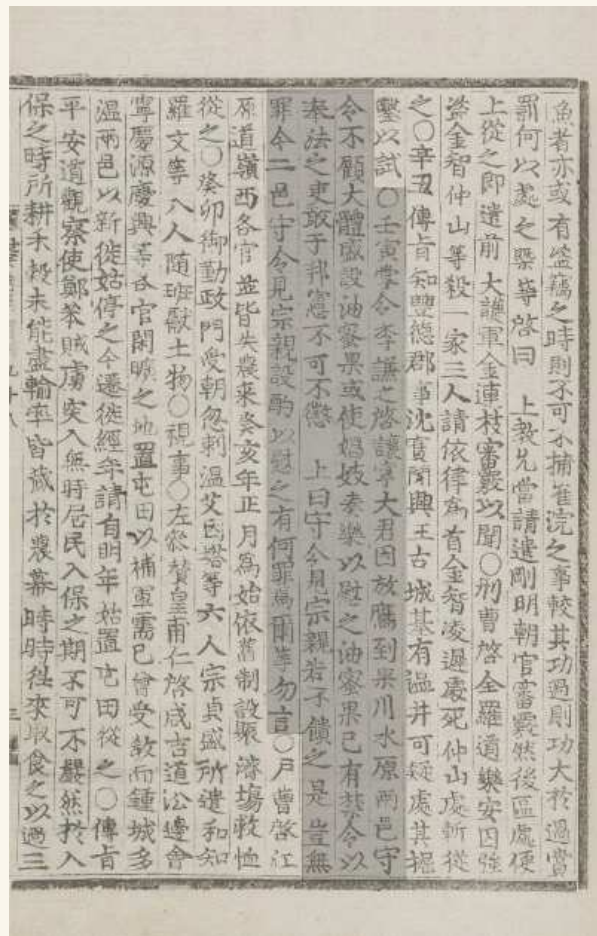 漁者亦或有盜竊之時則不可不捕崔浣之事較其功過則功大於過賞
罰何以處之槩等啓曰 上教允當請遣剛明朝官審覈然後區處便
上從之卽遣前大護軍金連枝審覈以聞○刑曹啓全羅道樂安囚強
盜金智仲山等殺一家三人請依律爲首金智凌遲處死仲山處斬從
之○辛丑傳旨知豐德郡事沈寶聞興王古城基有溫井可疑處其掘
鑿以試○壬寅掌令李謙之啓讓寧大君因放鷹到果川水原兩邑守
令不顧大體盛設油蜜果或使娼妓奏樂以慰之油蜜果已有禁令以
奉法之吏敢干邦憲不可不懲 上曰守令見宗親若不饋之是豈無
罪今二邑守令見宗親設酌以慰之有何罪焉爾等勿言○戶曹啓江
原道嶺西各官並皆失農來癸亥年正月爲始依舊制設賑濟場救恤
從之○癸卯御勤政門受朝忽剌溫艾邑塔等六人宗貞盛所遣和知
羅文等八人隨班獻土物○視事○左參贊皇甫仁啓咸吉道沿邊會
寧慶源慶興等各官閑曠之地置屯田以補軍需已曾受敎而鍾城多
溫兩邑以新徙姑停之今遷徙經年請自明年始置屯田從之○傳旨
平安道觀察使鄭苯賊虜突入無時居民入保之期不可不嚴然於入
保之時所耕禾穀未能盡輸率皆藏於農幕時時往來取食之以過三